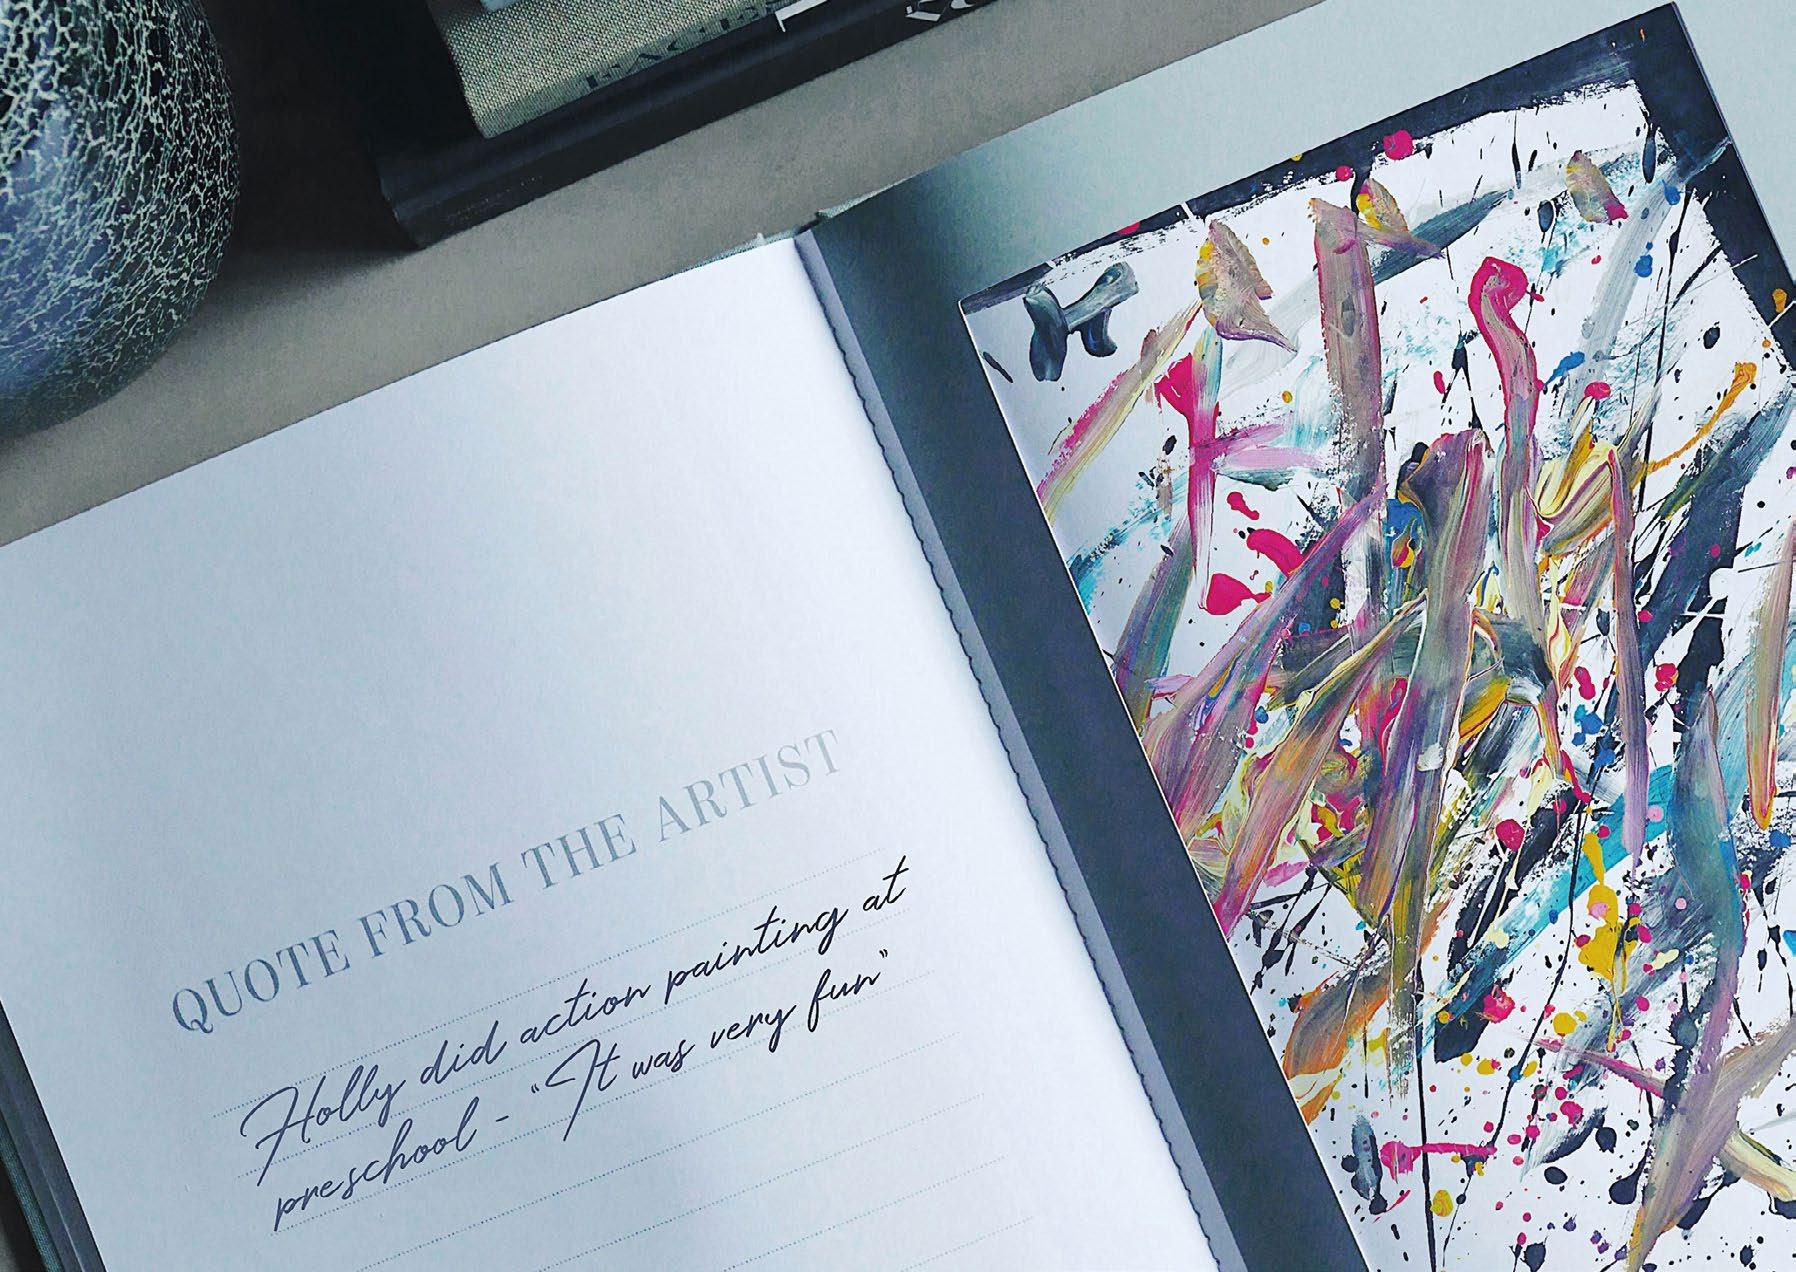 QUOTE FROM THE ARTIST
Holly did action painting at
preschool - "It was very fun"